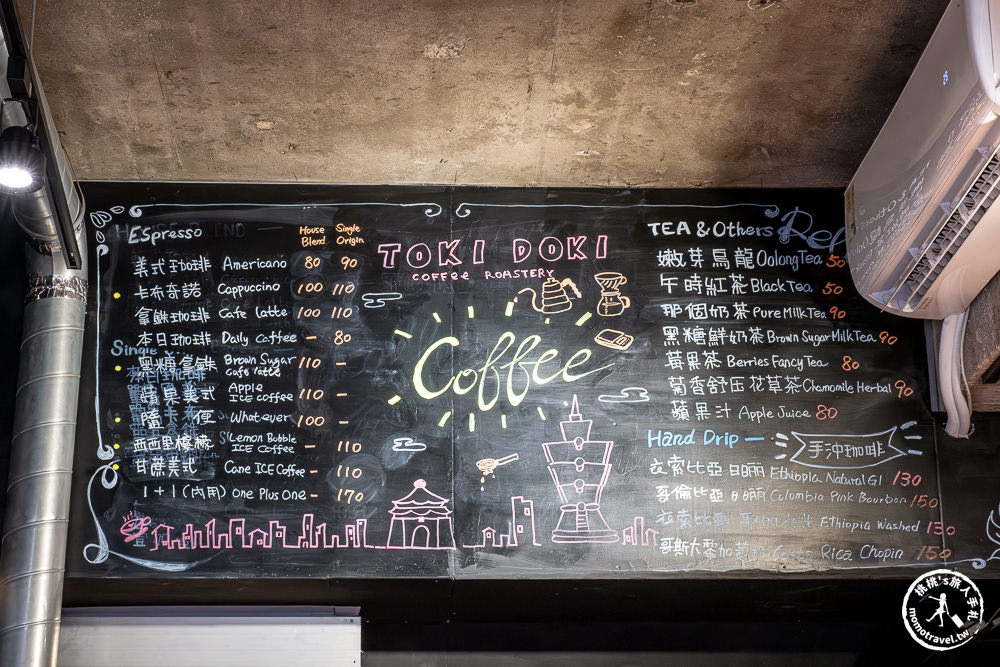 Espresso House Blend Single Origin
美式珈琲 Americano 80 90
卡布奇諾 Cappucino 100 110
拿鐵珈琲 Cafe latte 100 110
本日珈琲 Daily Coffee - 80
黑糖拿鉄 Brown Sugar Cafe latte 110 -
蘋果美式 Apple ICE coffee 110 -
隨 便 Whatever 100 -
西西里檸檬 Lemon Bubble ICE Coffee - 110
甘蔗美式 Cane ICE Coffee - 110
1+1(內用) One Plus One - 170
TOKI DOKI
COFFEE ROASTERY
Coffee
TEA & Others
嫩芽烏龍 Oolong Tea 50
午時紅茶 Black Tea 50
那個奶茶 Pure Milk Tea 90
黑糖鮮奶茶 Brown Sugar Milk Tea 90
莓果茶 Berries Fancy Tea 80
菊香舒压花草茶 Chamomile Herbal 90
蘋果汁 Apple Juice 80
Hand Drip — 手沖珈琲
衣索比亞日曬 Ethiopia Natural G1 130
哥倫比亞日曬 Colombia Pink Bourbon 150
衣索比亞 Ethiopia Washed 130
哥斯大黎加 Costa Rica Chopin 150
桃桃's旅人手札
momotravel.tw